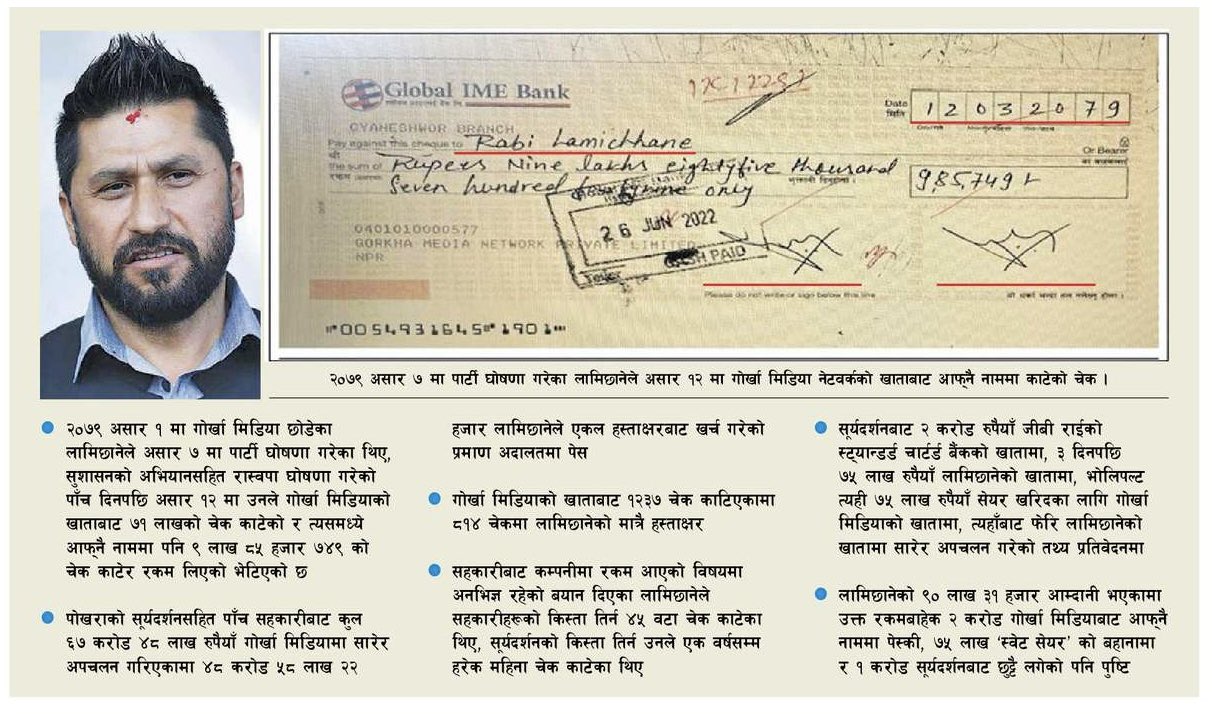 Global IME Bank
GYANESHWOR BRANCH
Date
मिति
1 2 0 3 2 0 7 9
Pay against this cheque to Rabi Lamichhane
Or Bearer
the sum of Rupees Nine lakhs eightyfive thousand
Seven hundred only
9,85,749/-
26 JUN 2022
CASH PAID
Teller
0401010000577
GORKHA MEDIA NETWORK PRIVATE LIMITED
NPR
Please do not write or sign below this line
⑈0054931645⑈1901⑈
२०७९ असार ७ मा पार्टी घोषणा गरेका लामिछानेले असार १२ मा गोर्खा मिडिया नेटवर्कको खाताबाट आफ्नै नाममा काटेको चेक ।
२०७९ असार १ मा गोर्खा मिडिया छोडेका
लामिछानेले असार ७ मा पार्टी घोषणा गरेका थिए,
सुशासनको अभियानसहित रास्वपा घोषणा गरेको
पाँच दिनपछि असार १२ मा उनले गोर्खा मिडियाको
खाताबाट ७१ लाखको चेक काटेको र त्यसमध्ये
आफ्नै नाममा पनि ९ लाख ८५ हजार ७४९ को
चेक काटेर रकम लिएको भेटिएको छ
पोखराको सूर्यदर्शनसहित पाँच सहकारीबाट कुल
६७ करोड ४८ लाख रुपैयाँ गोर्खा मिडियामा सारेर
अपचलन गरिएकामा ४८ करोड ५८ लाख २२
हजार लामिछानेले एकल हस्ताक्षरबाट खर्च गरेको
प्रमाण अदालतमा पेस
गोर्खा मिडियाको खाताबाट १२३७ चेक काटिएकामा
८१४ चेकमा लामिछानेको मात्रै हस्ताक्षर
सहकारीबाट कम्पनीमा रकम आएको विषयमा
अनभिज्ञ रहेको बयान दिएका लामिछानेले
सहकारीहरूको किस्ता तिर्न ४५ वटा चेक काटेका
थिए, सूर्यदर्शनको किस्ता तिर्न उनले एक वर्षसम्म
हरेक महिना चेक काटेका थिए
सूर्यदर्शनबाट २ करोड रुपैयाँ जीबी राईको
स्ट्यान्डर्ड चार्टर्ड बैंकको खातामा, ३ दिनपछि
७५ लाख रुपैयाँ लामिछानेको खातामा, भोलिपल्ट
त्यही ७५ लाख रुपैयाँ सेयर खरिदका लागि गोर्खा
मिडियाको खातामा, त्यहाँबाट फेरि लामिछानेको
खातामा सारेर अपचलन गरेको तथ्य प्रतिवेदनमा
लामिछानेको ९० लाख ३१ हजार आम्दानी भएकामा
उक्त रकमबाहेक २ करोड गोर्खा मिडियाबाट आफ्नै
नाममा पेस्की, ७५ लाख ‘स्वेट सेयर’ को बहानामा
र १ करोड सूर्यदर्शनबाट छुट्टै लगेको पनि पुष्टि